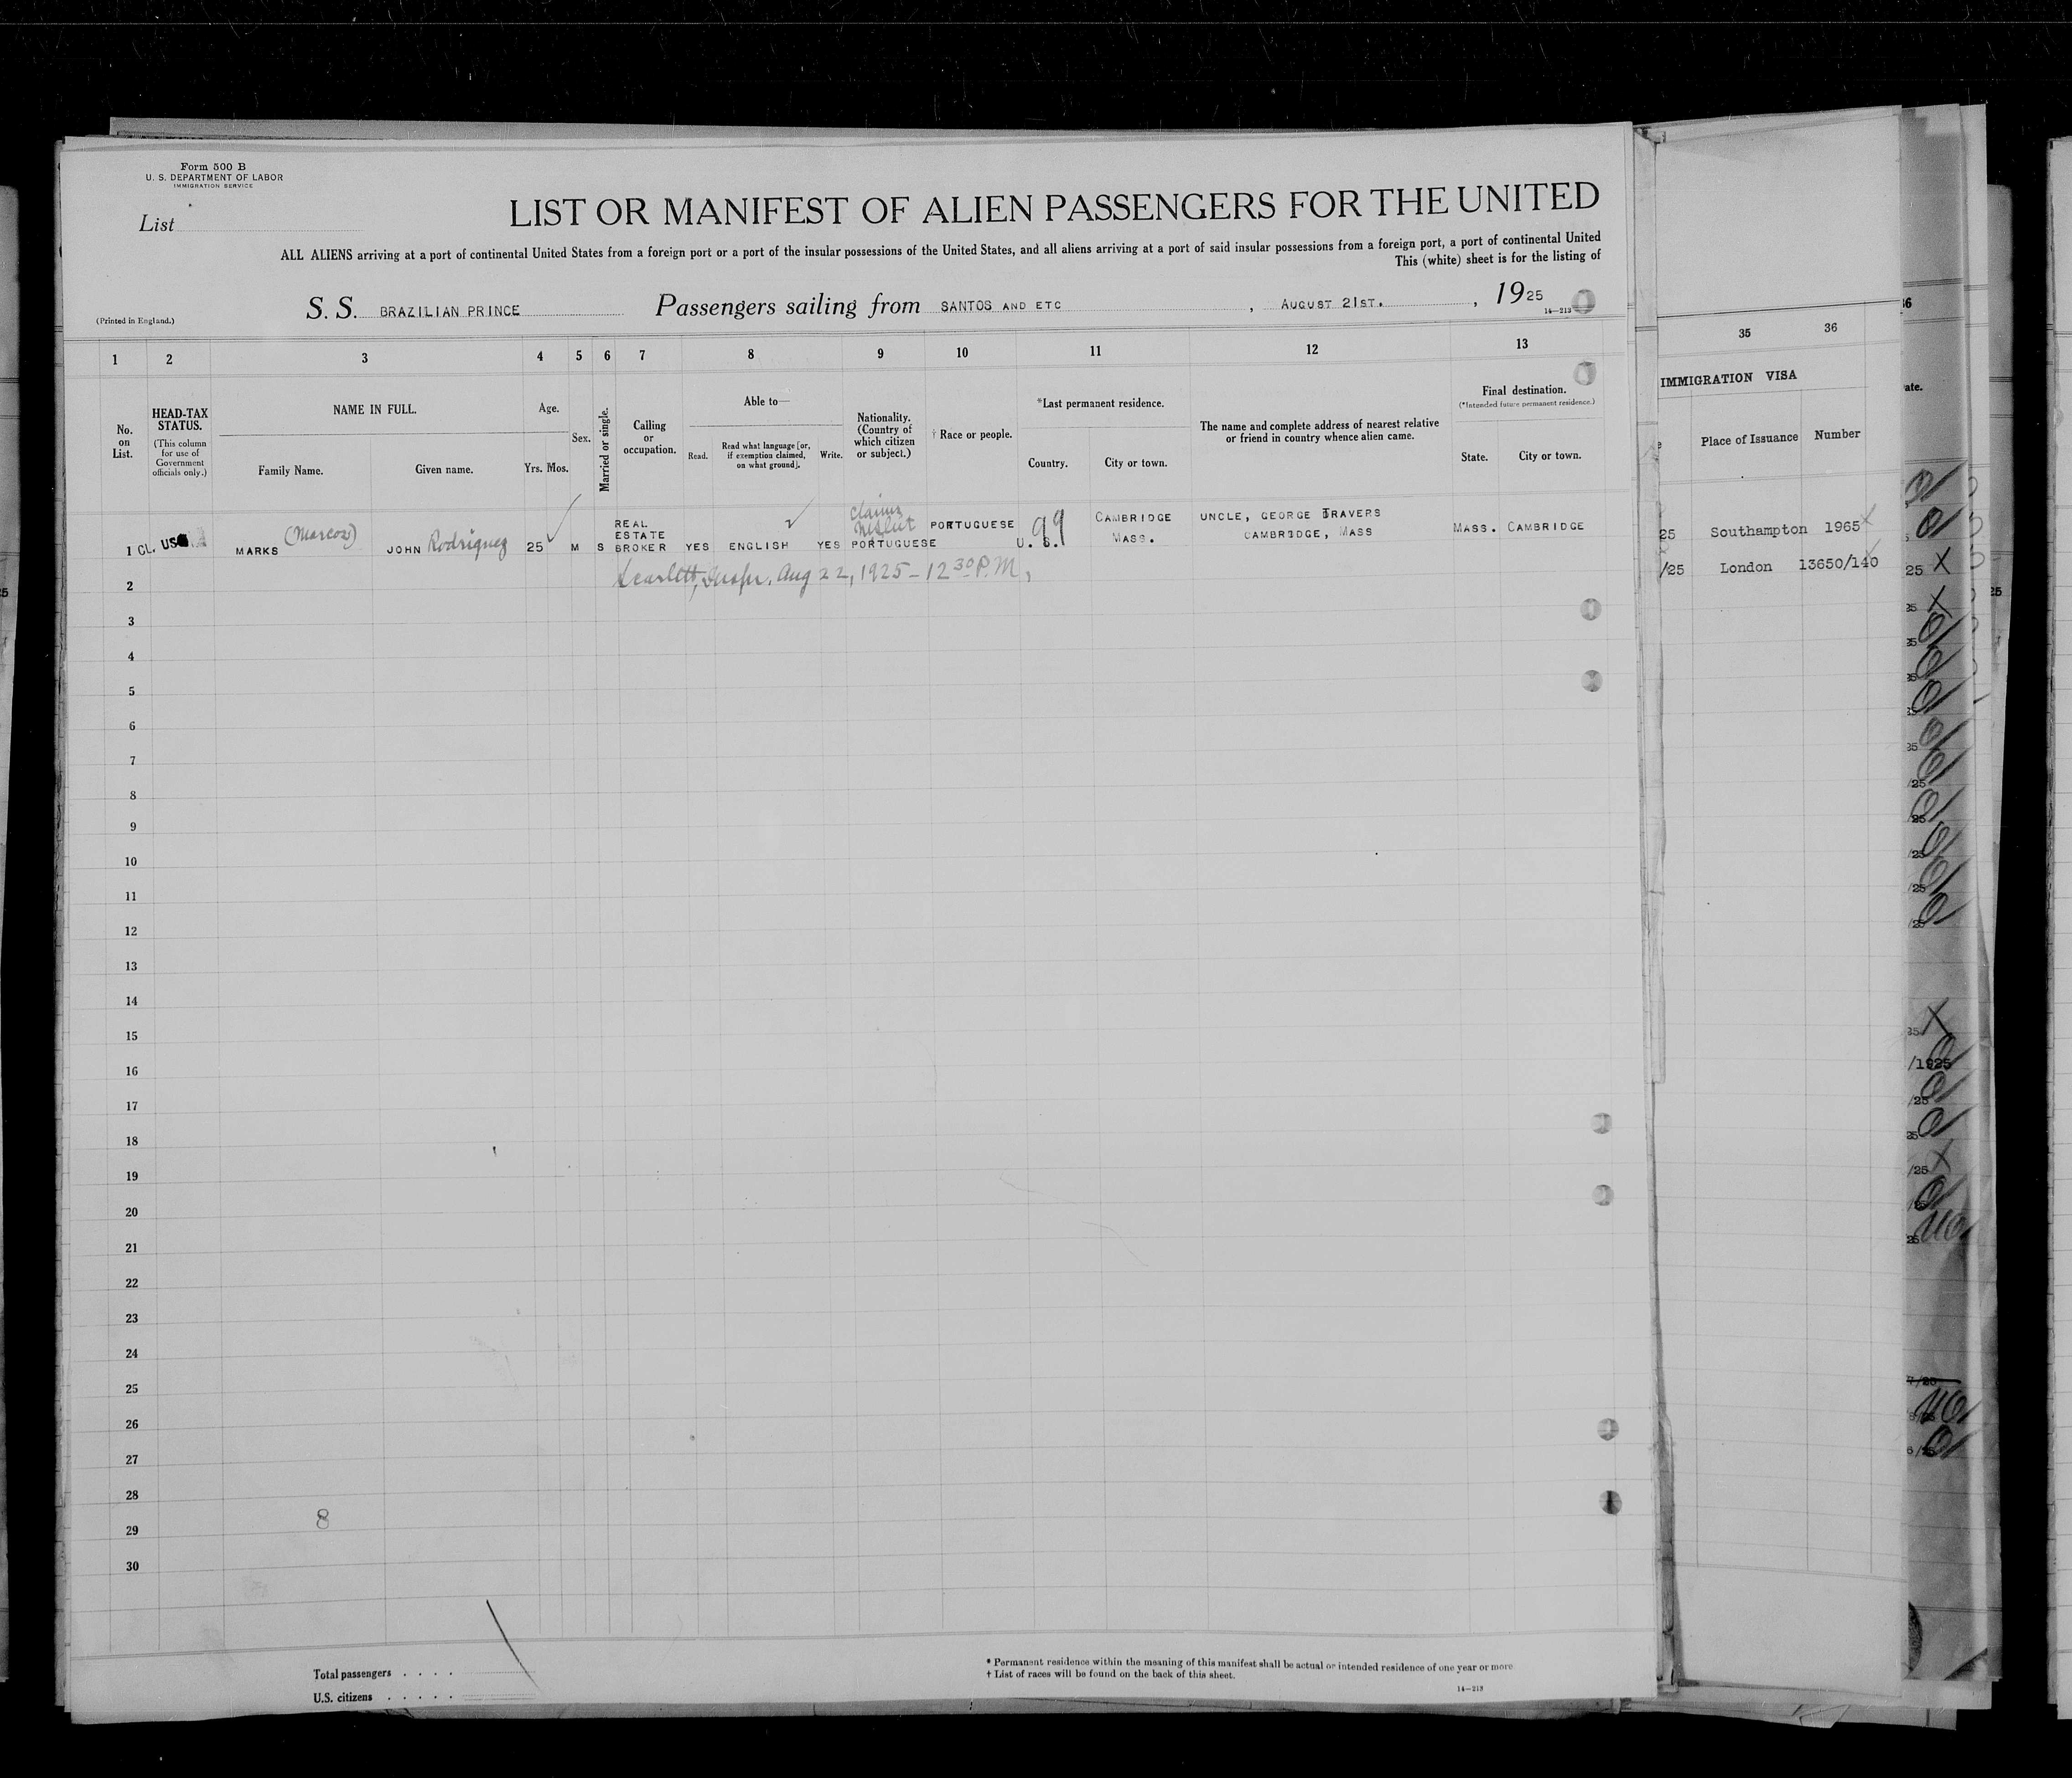 Form 500 B
U. S. DEPARTMENT OF LABOR
IMMIGRATION SERVICE
List
LIST OR MANIFEST OF ALIEN PASSENGERS FOR THE UNITED
ALL ALIENS arriving at a port of continental United States from a foreign port or a port of the insular possessions of the United States, and all aliens arriving at a port of said insular possessions from a foreign port, a port of continental United
This (white) sheet is for the listing of
S. S. BRAZILIAN PRINCE Passengers sailing from SANTOS AND ETC , AUGUST 21ST. , 1925
(Printed in England.)
14—213
1 2 3 4 5 6 7 8 9 10 11 12 13
No. on List.
HEAD-TAX STATUS.
(This column for use of Government officials only.)
NAME IN FULL.
Family Name. Given name.
Age.
Yrs. Mos.
Sex.
Married or single.
Calling or occupation.
Able to—
Read. Read what language [or, if exemption claimed, on what ground]. Write.
Nationality. (Country of which citizen or subject.)
† Race or people.
*Last permanent residence.
Country. City or town.
The name and complete address of nearest relative or friend in country whence alien came.
Final destination.
(*Intended future permanent residence.)
State. City or town.
1 CL. US MARKS (Marcos) JOHN Rodriguez 25 M S REAL ESTATE BROKER YES ENGLISH YES claims PORTUGUESE PORTUGUESE U. S. 99 CAMBRIDGE MASS. UNCLE, GEORGE TRAVERS CAMBRIDGE, MASS MASS. CAMBRIDGE
2 Scarlett, Inspr. Aug 22, 1925 - 12 30 P.M,
3
4
5
6
7
8
9
10
11
12
13
14
15
16
17
18
19
20
21
22
23
24
25
26
27
28
29
30
8
Total passengers . . . .
U.S. citizens . . . . .
* Permanent residence within the meaning of this manifest shall be actual or intended residence of one year or more.
† List of races will be found on the back of this sheet.
14—213
35 36
IMMIGRATION VISA
Place of Issuance Number
25 Southampton 1965
/25 London 13650/140
ate.
/1925